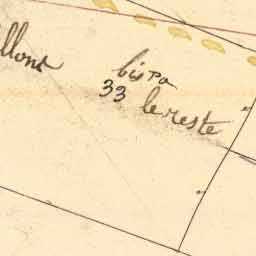 llont
bis pa
33
le reste